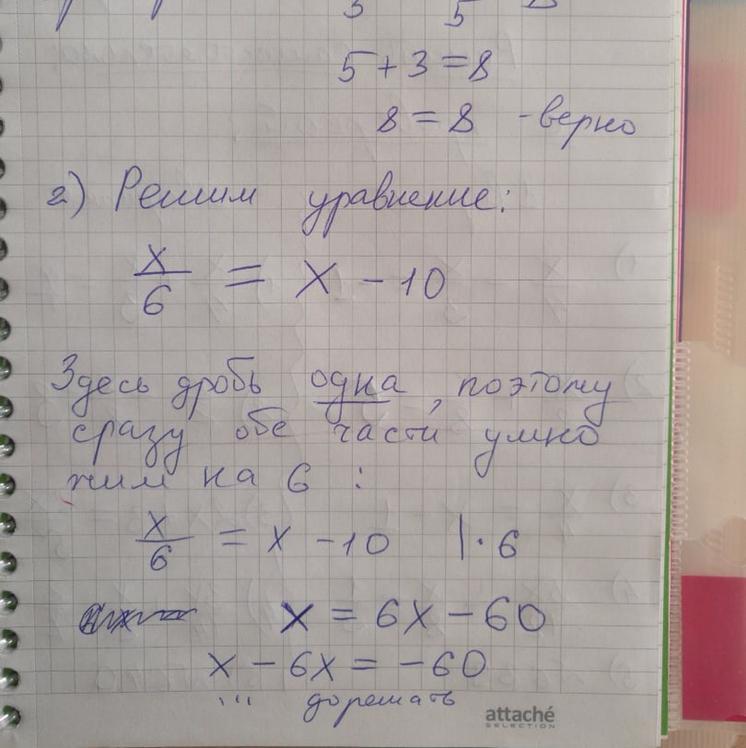 3 5
5 + 3 = 8
8 = 8 - верно
2) Решим уравнение:
x/6 = x - 10
Здесь дробь одна, поэтому
сразу обе части умно
жим на 6 :
x/6 = x - 10 | · 6
x = 6x - 60
x - 6x = -60
... дорешать
attaché
SELECTION